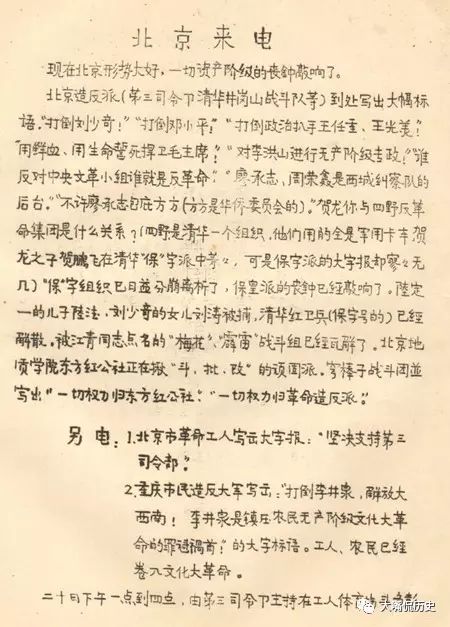 北京来电
现在北京形势大好，一切资产阶级的丧钟敲响了。
北京造反派(第三司令卫清华井岗山战斗队等)到处写出大幅标
语，"打倒刘少奇！""打倒邓小平！""打倒政治扒手王任重、王光美！"
"用鲜血、用生命誓死捍卫毛主席！""对李洪山进行无产阶级专政！"谁
反对中央文革小组谁就是反革命""廖承志、周荣鑫是西城纠察队的
后台。"不许廖承志包庇方方(方方是华侨委员会的)。"贺龙你与四野反革
命集团是什么关系？(四野是清华一个组织，他们用的全是军用卡车，贺
龙之子贺鹏飞在清华"保"字派中等々，可是保字派的大字报却寥々无
几)"保"字组织已日益分崩离析了，保皇派的丧钟已经敲响了。陆定
一的儿子陆法，刘少奇的女儿刘涛被捕，清华红卫兵(保字号的)已经
解散。被江青同志点名的"梅花"、"霹雷"战斗组已经瓦解了。北京地
质学院东方红公社正在揪"斗、批、改"的顽固派。棒子战斗团並
写出"一切权力归东方红公社"、"一切权力归革命造反派。"
另电：1.北京市革命工人写出大字报："坚决支持第三
司令部"。
2.重庆市民造反大军写出："打倒李井泉，解放大
西南！李井泉是镇压农民无产阶级文化大革
命的罪魁祸首！"的大字标语。工人、农民已经
卷入文化大革命。
二十日下午一点到四点，由第三司令卫主持在工人体育
大嘴侃历史